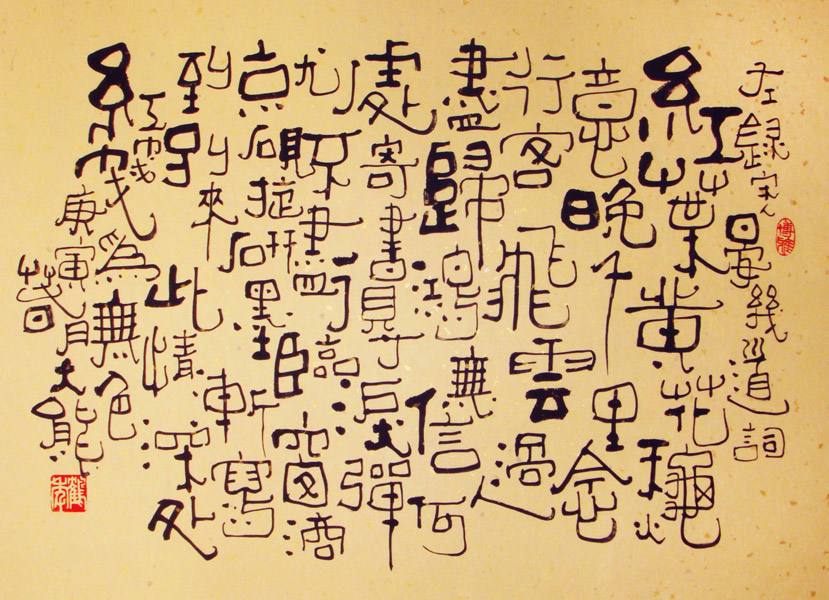 左錄宋人晏幾道詞
紅葉黃花秋
意晚千里念
行客飛雲過
盡歸鴻無信何
處寄書得淚彈
不盡臨窗滴
就硯旋研墨漸寫
到別來此情深处
紅箋為無色
庚寅月大熊